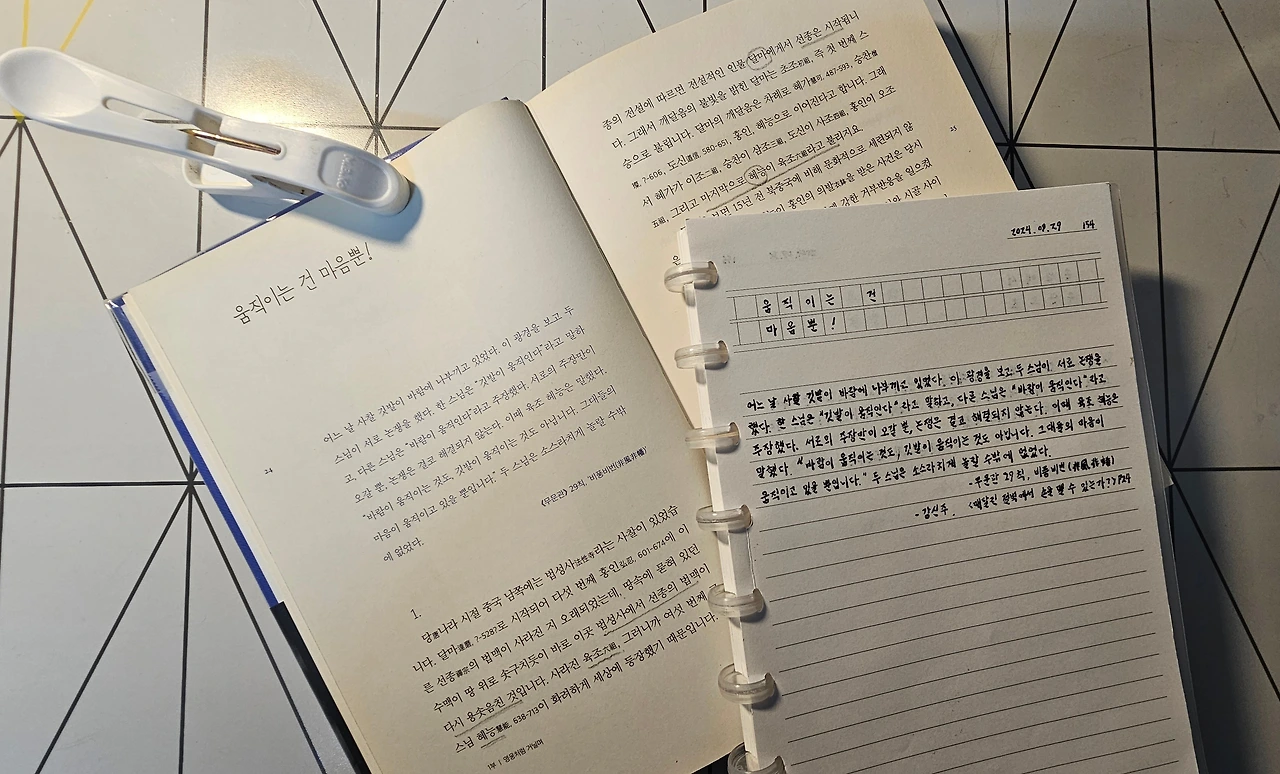 움직이는 건 마음뿐!
어느 날 사찰 깃발이 바람에 나부끼고 있었다. 이 광경을 보고 두
스님이 서로 논쟁을 했다. 한 스님은 “깃발이 움직인다”라고 말하
고, 다른 스님은 “바람이 움직인다”라고 주장했다. 서로의 주장만이
오갈 뿐, 논쟁은 결코 해결되지 않는다. 이때 육조 혜능은 말했다.
“바람이 움직이는 것도, 깃발이 움직이는 것도 아닙니다. 그대들의
마음이 움직이고 있을 뿐입니다.” 두 스님은 소스라치게 놀랄 수밖
에 없었다.
《무문관》 29칙, ‘비풍비번(非風非幡)’
24
1.
당唐나라 시절 중국 남쪽에는 법성사法性寺라는 사찰이 있었습
니다. 달마達磨, ?-528?로 시작되어 다섯 번째 홍인弘忍, 601-674에 이
른 선종禪宗의 법맥이 사라진 지 오래되었는데, 땅속에 묻혀 있던
수맥이 땅 위로 솟구치듯이 바로 이곳 법성사에서 선종의 법맥이
다시 용솟음친 것입니다. 사라진 육조六祖, 그러니까 여섯 번째
스님 혜능慧能, 638-713이 화려하게 세상에 등장했기 때문입니다.
1부 | 영웅처럼 거닐며
종의 전설에 따르면 전설적인 인물 달마에게서 선종은 시작됩니
다. 그래서 깨달음의 불빛을 밝힌 달마는 초조初祖, 즉 첫 번째 스
승으로 불립니다. 달마의 깨달음은 차례로 혜가慧可, 487-593, 승찬僧
璨, ?-606, 도신道信, 580-651, 홍인, 혜능으로 이어진다고 합니다. 그래
서 혜가가 이조二祖, 승찬이 삼조三祖, 도신이 사조四祖, 홍인이 오조
五祖, 그리고 마지막으로 혜능이 육조六祖라고 불리지요.
15년 전 북중국에 비해 문화적으로 세련되지 않
홍인의 의발衣鉢을 받은 사건은 당시
강한 거부반응을 일으켰
시골 사이
은
25
2024.09.29 154
움직이는 건
마음뿐!
어느 날 사찰 깃발이 바람에 나부끼고 있었다. 이 광경을 보고 두 스님이 서로 논쟁을
했다. 한 스님은 “깃발이 움직인다”라고 말하고, 다른 스님은 “바람이 움직인다”라고
주장했다. 서로의 주장만이 오갈 뿐, 논쟁은 결코 해결되지 않는다. 이때 육조 혜능은
말했다. “바람이 움직이는 것도, 깃발이 움직이는 것도 아닙니다. 그대들의 마음이
움직이고 있을 뿐입니다.” 두 스님은 소스라치게 놀랄 수밖에 없었다.
-무문관 29칙, 비풍비번(非風非幡)
-강신주. <매달린 절벽에서 손을 뗄 수 있는가?>P24